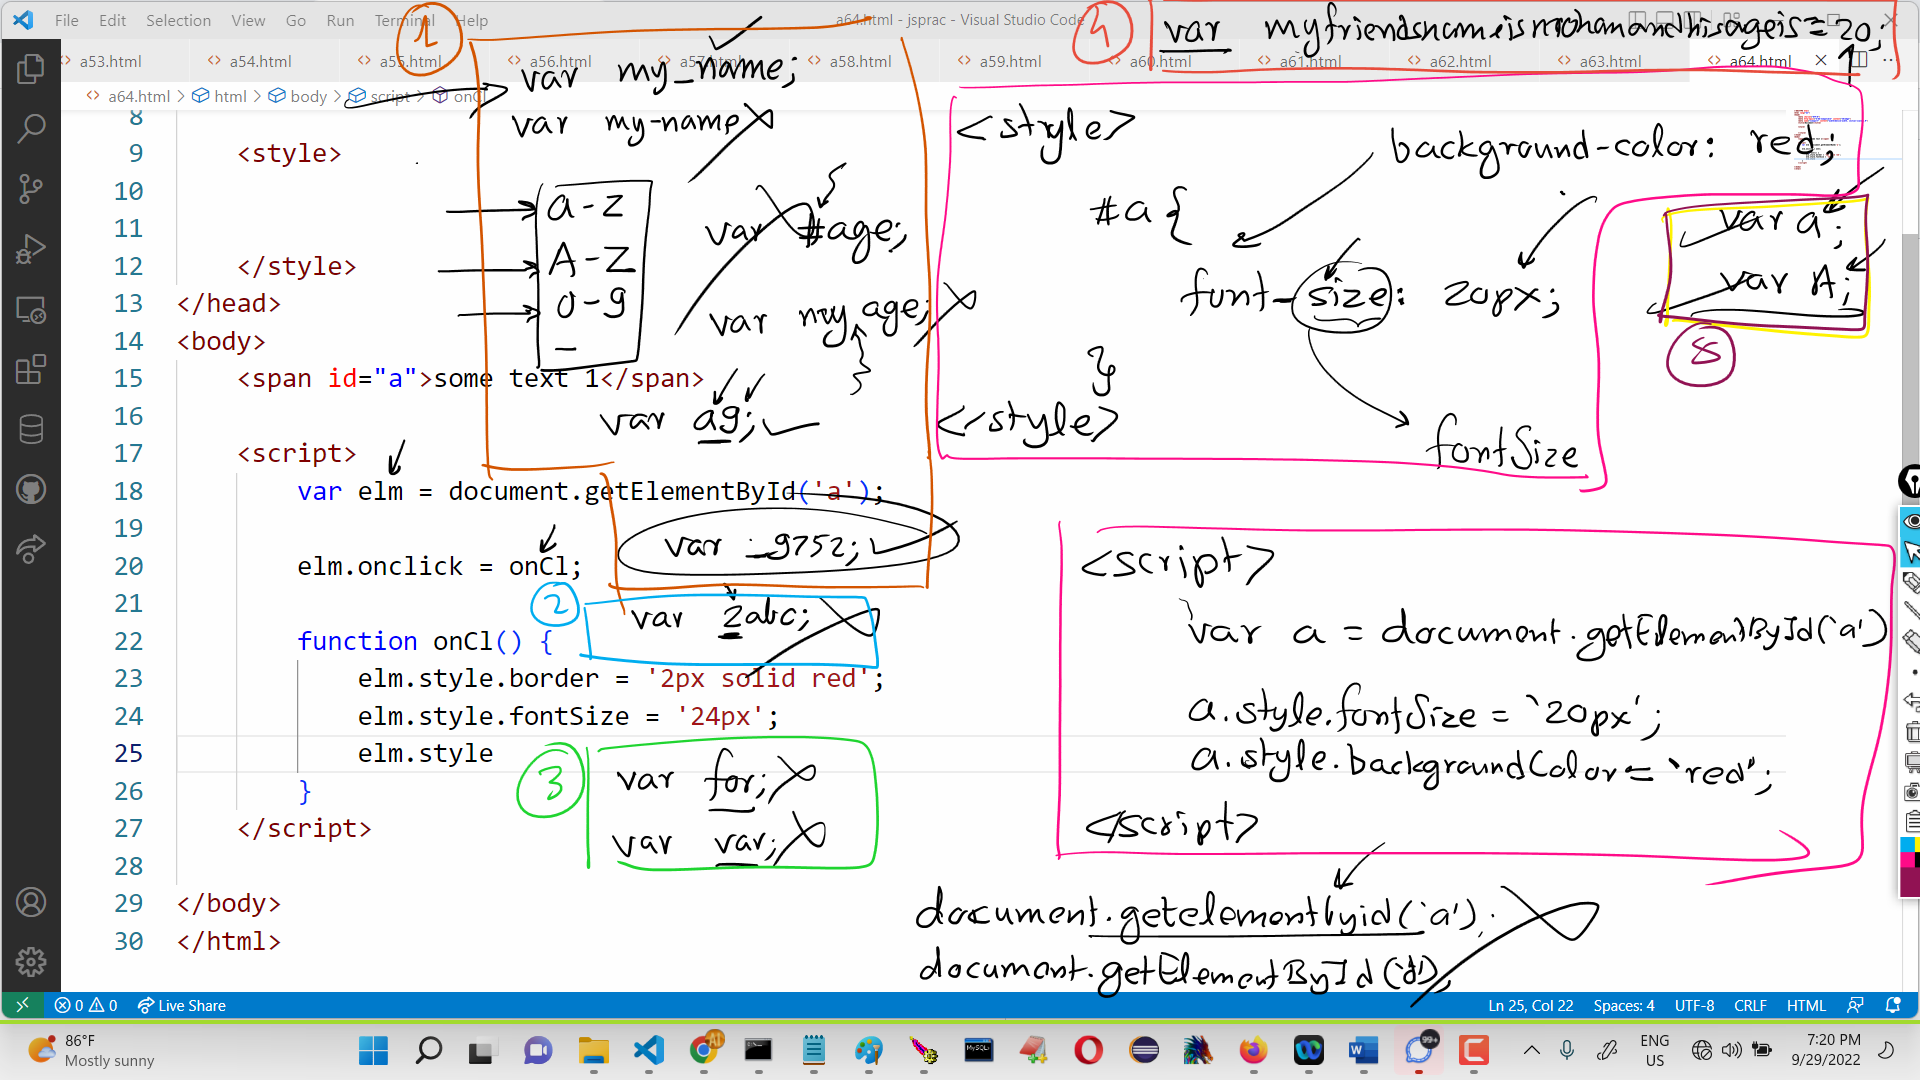 File Edit Selection View Go Run Terminal Help
a64.html - jsprac - Visual Studio Code
a53.html a54.html a55.html a56.html a57.html a58.html a59.html a60.html a61.html a62.html a63.html a64.html
a64.html > html > body > script > onCl
8
9 <style>
10
11
12 </style>
13 </head>
14 <body>
15 <span id="a">some text 1</span>
16
17 <script>
18 var elm = document.getElementById('a');
19
20 elm.onclick = onCl;
21
22 function onCl() {
23 elm.style.border = '2px solid red';
24 elm.style.fontSize = '24px';
25 elm.style
26 }
27 </script>
28
29 </body>
30 </html>
1
var my_name;
var my-name
a-z
A-Z
0-9
_
var #age;
var my age;
var ag;
var _9752;
2
var 2abc;
3
var for;
var var;
4
var myfriendsnameisrohanandhisageis=20;
<style>
background-color: red;
#a{
font-size: 20px;
}
</style>
fontSize
var a;
var A;
8
<script>
var a = document.getElementById('a')
a.style.fontSize = '20px';
a.style.backgroundColor = 'red';
</script>
document.getelementbyid('a');
document.getElementById('a');
0 0 Live Share
Ln 25, Col 22 Spaces: 4 UTF-8 CRLF HTML
86°F
Mostly sunny
99+
ENG
US
7:20 PM
9/29/2022